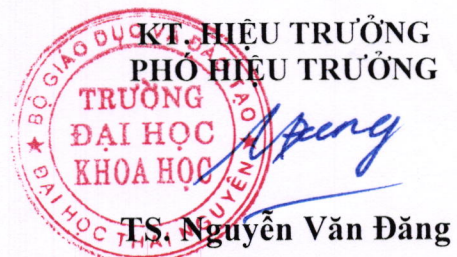 KT. HIỆU TRƯỞNG
PHÓ HIỆU TRƯỞNG
BỘ GIÁO DỤC VÀ ĐÀO TẠO
TRƯỜNG
ĐẠI HỌC
KHOA HỌC
ĐẠI HỌC THÁI NGUYÊN
TS. Nguyễn Văn Đăng